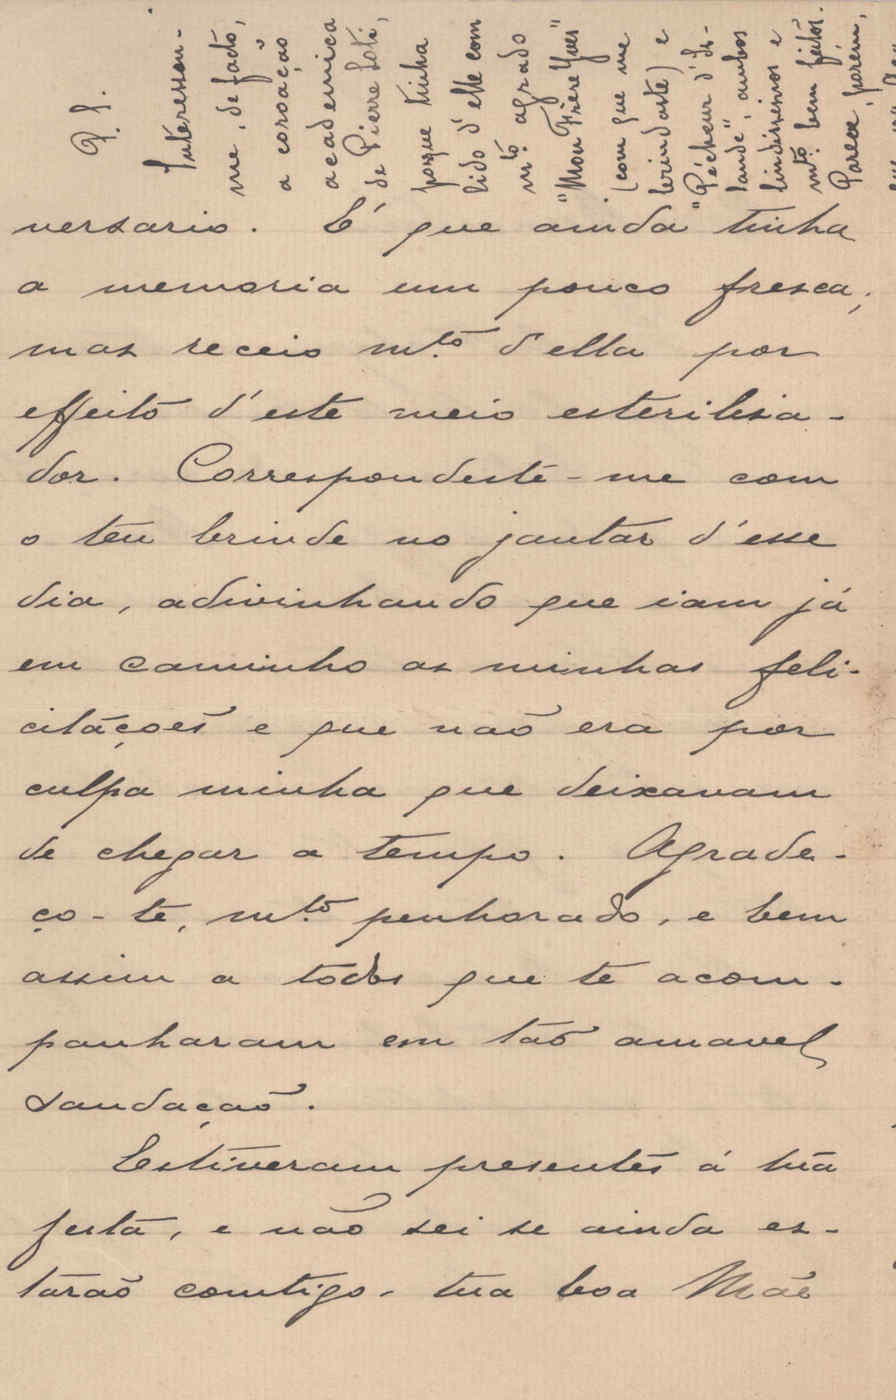 P. S.
Interessou-
me, de facto,
a coroação
academica
de Pierre Loti,
porque tinha
lido d'elle com
mto agrado
"Mon Frère Yves"
(com que me
brindaste) e
"Pêcheur d'Is-
lande", ambos
lindissimos e
mto bem feitos.
Parece, porém,
versario. É que ainda tinha
a memoria um pouco fresca;
mas receio mto d'ella por
effeito d'este meio esterilisa-
dor. Correspondeste-me com
o teu brinde no jantar d'esse
dia, adivinhando que iam já
em caminho as minhas feli-
citações e que não era por
culpa minha que deixavam
de chegar a tempo. Agrade-
ço-te, mto penhorado, e bem
assim a todos que te acom-
panharam em tão amavel
saudação.
Estiveram presentes á tua
festa, e não sei se ainda es-
tarão comtigo, tua boa Mãe